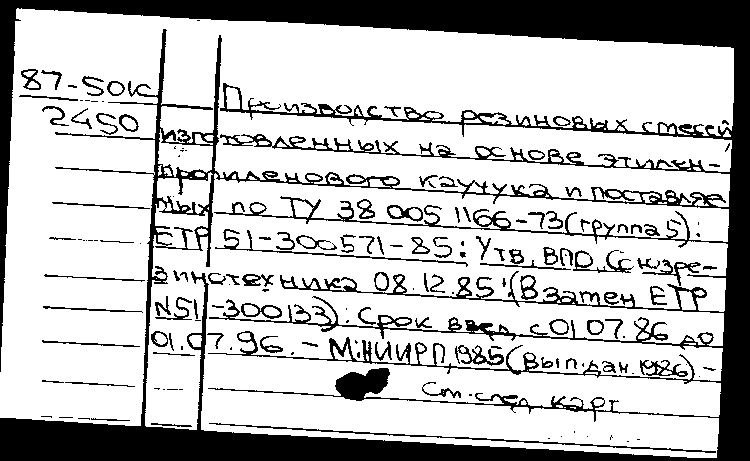 87-50к
2450
Производство резиновых смесей,
изготовленных на основе этилен-
пропиленового каучука и поставляе
мых по ТУ 38 005 1166-73(группа 5):
ЕТР 51-300571-85: Утв. ВПО "Союзре-
зинотехника 08.12.85 :(Взамен ЕТР
N51-300133): Срок введ. с 01.07.86 до
01.07.96. - М:НИИРП, 1985 (Вып.дан. 1986) -
См.след. карт